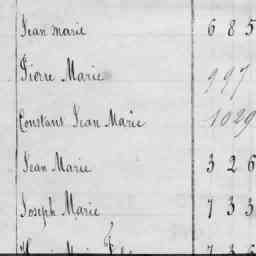 Jean Marie 685
Pierre Marie 997
Constant Jean Marie 1029
Jean Marie 326
Joseph Marie 733